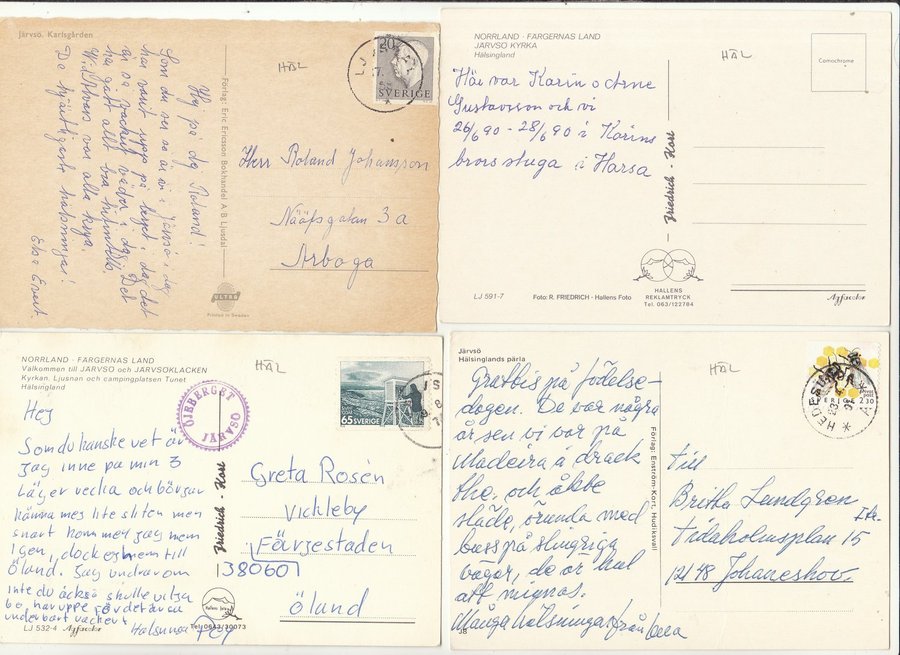 Järvsö. Karlsgården
Hej på dig Roland!
Som du ser så är vi i Järvsö i dag
har varit uppe på berget i dag, det
är så vackert väder i dag. Det
har gått allt bra hitintills.
var alla krya,
De hjärtligaste hälsningar
Elsa Evert.
Förlag: Eric Ericsson Bokhandel A B Ljusdal
HÄL
20
SVERIGE
Herr Roland Johansson
Nääfsgatan 3 a
Arboga
ULTRA
Printed in Sweden
NORRLAND · FÄRGERNAS LAND
JÄRVSÖ KYRKA
Hälsingland
HÄL
Comochrome
Här var Karin o Arne
Gustavsson och vi
26/6 90 - 28/6 90 i Karins
brors stuga i Harsa
Friedrich - Kort
HALLENS
REKLAMTRYCK
Tel. 063/122784
LJ 591-7
Foto: R. FRIEDRICH - Hallens Foto
Agfacolor
NORRLAND · FÄRGERNAS LAND
Välkommen till JÄRVSÖ och JÄRVSÖKLACKEN
Kyrkan. Ljusnan och campingplatsen Tunet
Hälsingland
HÄL
ÖJEBERGET
JÄRVSÖ
65 SVERIGE
Hej
Som du kanske vet är
jag inne på min 3
läger vecka och börjar
känna mej lite sliten men
snart kommer jag hem
igen, dock ej hem till
Öland. Jag undrar om
inte du också skulle vilja
bo häruppe för det är så
underbart vackert
Hälsningar
Friedrich - Kort
Greta Rosén
Vickleby
Färjestaden
380607
Öland
LJ 532-4 Agfacolor
Tel. 0643/30073
Järvsö
Hälsinglands pärla
HÄL
SVERIGE 230
HEDESUNDA
Grattis på födelse-
dagen. De var några
år sen vi var på
Madeira å drack
the, och åkte
släde, o runda med
buss på slingriga
vägar, de är kul
att minnas.
Många Hälsningar från
Förlag: Enström-Kort, Hudiksvall
Till
Britta Lundgren
Tidaholmsplan 15
121 48 Johaneshov.
38